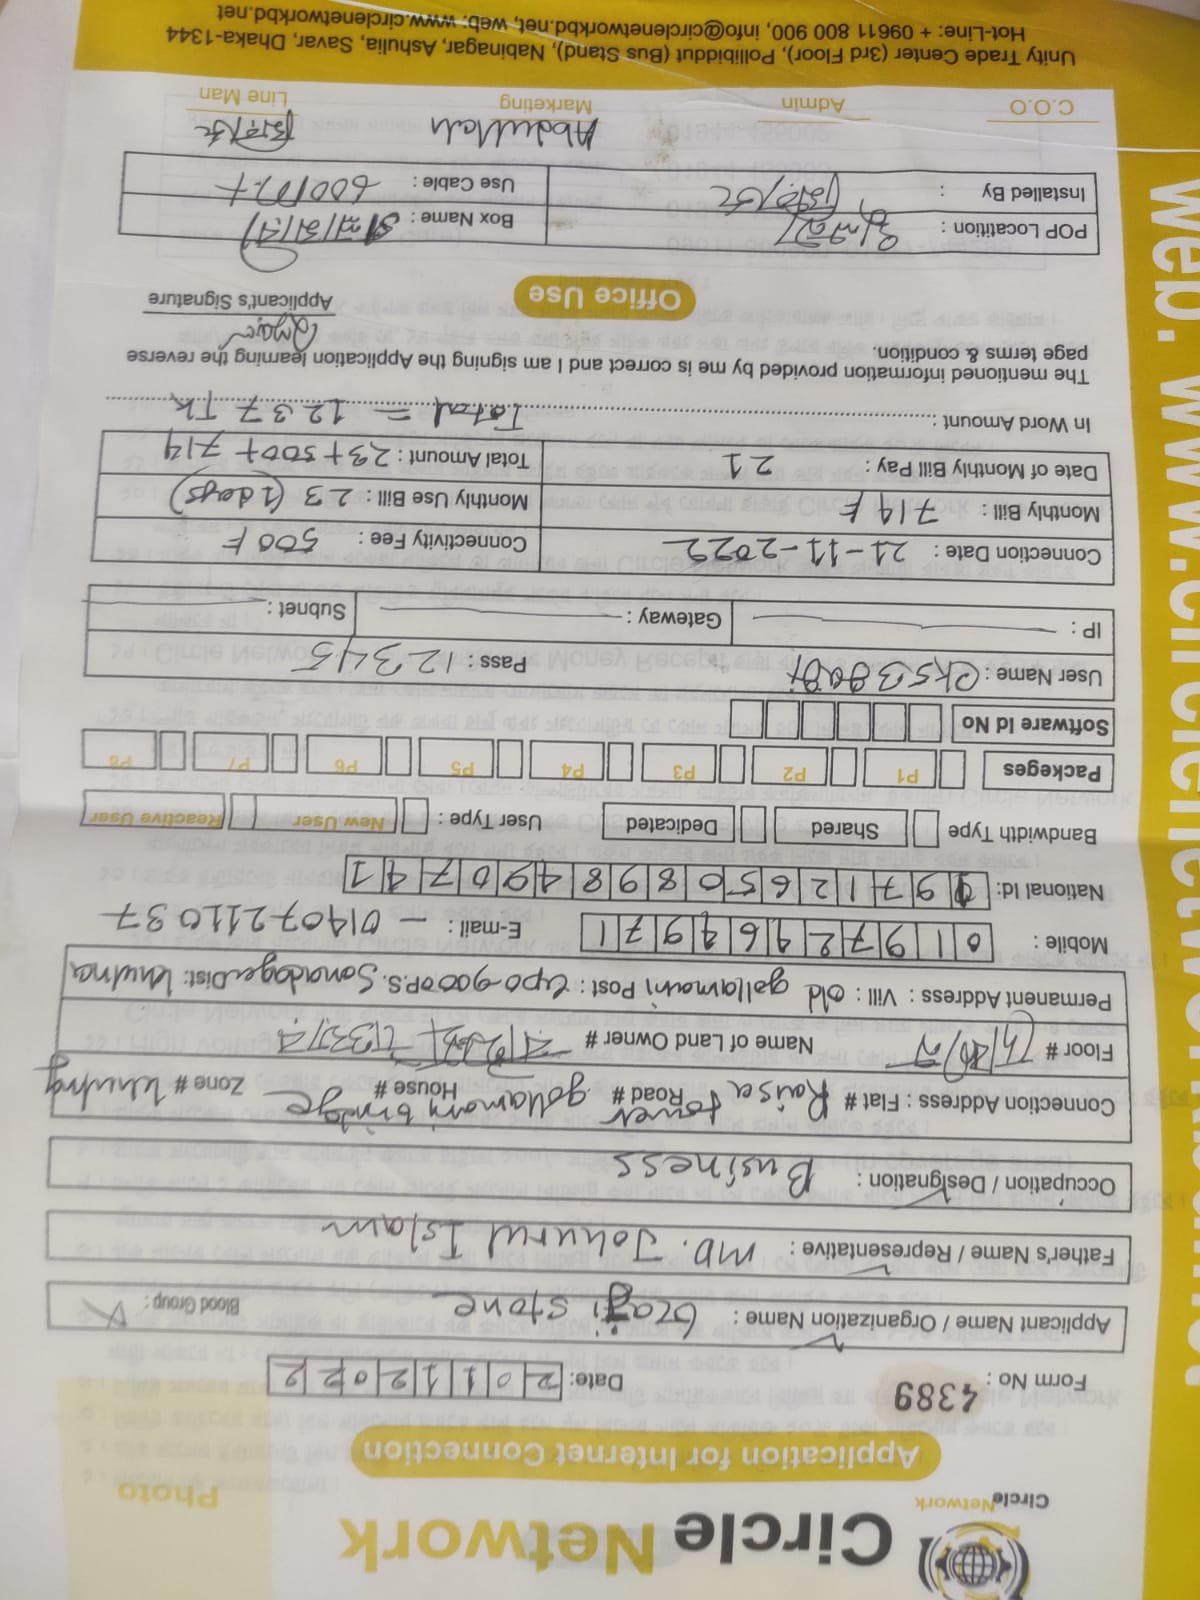 Circle Network
Circle Network
Photo
Application for Internet Connection
Form No : 4389 Date: 20112022
Applicant Name / Organization Name : Gazi store Blood Group :
Father's Name / Representative : MD. Johurul Islam
Occupation / Designation : Business
Connection Address : Flat # Raisa tower Road # gollamari bridge House # Zone # khulna
Floor # Name of Land Owner #
Permanent Address : Vill : old gollamari Post : Gpo-9000 P.S. Sonadaga Dist: khulna
Mobile : E-mail : - 01407211037
National Id: 19712650898490741
Bandwidth Type Shared Dedicated User Type : New User Reactive User
Packeges P1 P2 P3 P4 P5 P6 P7 P8
Software Id No
User Name : Pass : 12345
IP : Gateway : Subnet :
Connection Date : 21-11-2022 Connectivity Fee : 500 ৳
Monthly Bill : 714 ৳ Monthly Use Bill : 23 (1 days)
Date of Monthly Bill Pay : 21 Total Amount : 23+500+714
In Word Amount : Total = 1237 TK
The mentioned information provided by me is correct and I am signing the Application learning the reverse
page terms & condition.
Applicant's Signature
Office Use
POP Locatition : Box Name :
Installed By : Use Cable : 600 M
Abdullah
C.O.O Admin Marketing Line Man
Unity Trade Center (3rd Floor), Pollibiddut (Bus Stand), Nabinagar, Ashulia, Savar, Dhaka-1344
Hot-Line: + 09611 800 900, info@circlenetworkbd.net, web: www.circlenetworkbd.net